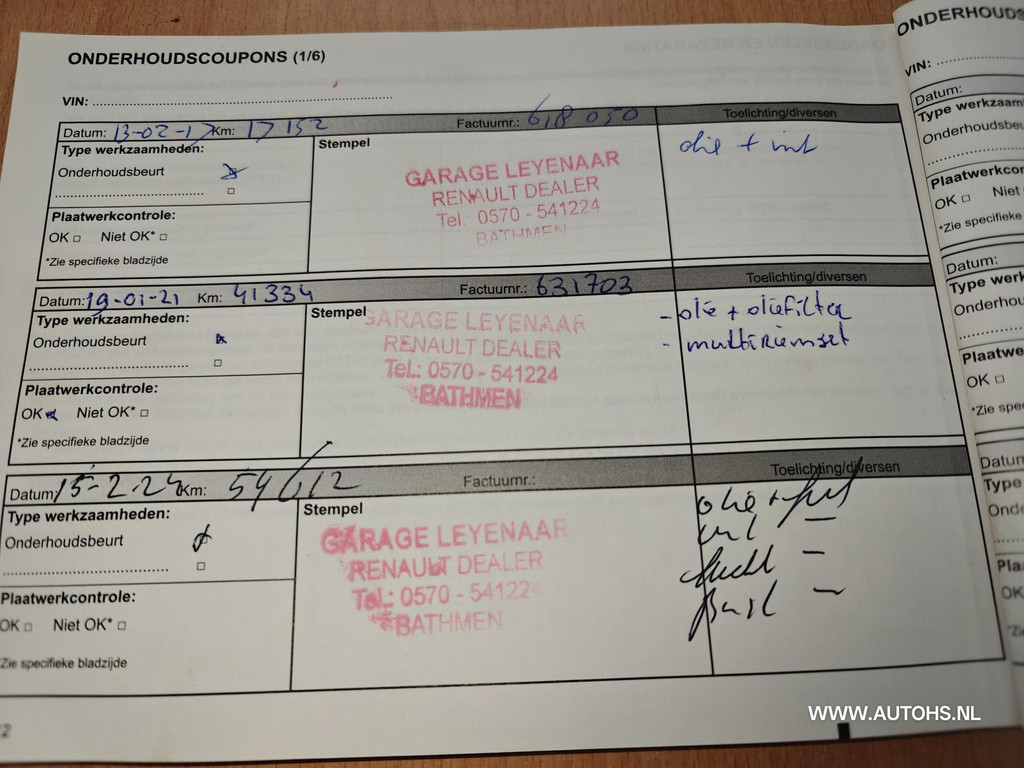 ONDERHOUDSCOUPONS (1/6)
VIN:
Datum: 13-02-17 Km: 17152 Factuurnr.: 618050 Toelichting/diversen
Type werkzaamheden:
Onderhoudsbeurt
Stempel
GARAGE LEYENAAR
RENAULT DEALER
Tel. 0570 - 541224
BATHMEN
olie + int
Plaatwerkcontrole:
OK □ Niet OK* □
*Zie specifieke bladzijde
Datum: 19-01-21 Km: 41334 Factuurnr.: 631703 Toelichting/diversen
Type werkzaamheden:
Onderhoudsbeurt
Stempel
GARAGE LEYENAAR
RENAULT DEALER
Tel.: 0570 - 541224
BATHMEN
- olie + oliefilter
- multiriemset
Plaatwerkcontrole:
OK Niet OK* □
*Zie specifieke bladzijde
Datum: 15-2-24 Km: 54612 Factuurnr.: Toelichting/diversen
Type werkzaamheden:
Onderhoudsbeurt
Stempel
GARAGE LEYENAAR
RENAULT DEALER
Tel.: 0570 - 541224
BATHMEN
olie +
Plaatwerkcontrole:
OK □ Niet OK* □
*Zie specifieke bladzijde
2
ONDERHOUDS
VIN:
Datum:
Type werkzaam
Onderhoudsbeu
Plaatwerkcon
OK □ Niet
*Zie specifieke
Datum:
Type werk
Onderhou
Plaatwe
OK □
*Zie spe
Datum
Type
Onde
Plaa
OK
*Zi
WWW.AUTOHS.NL